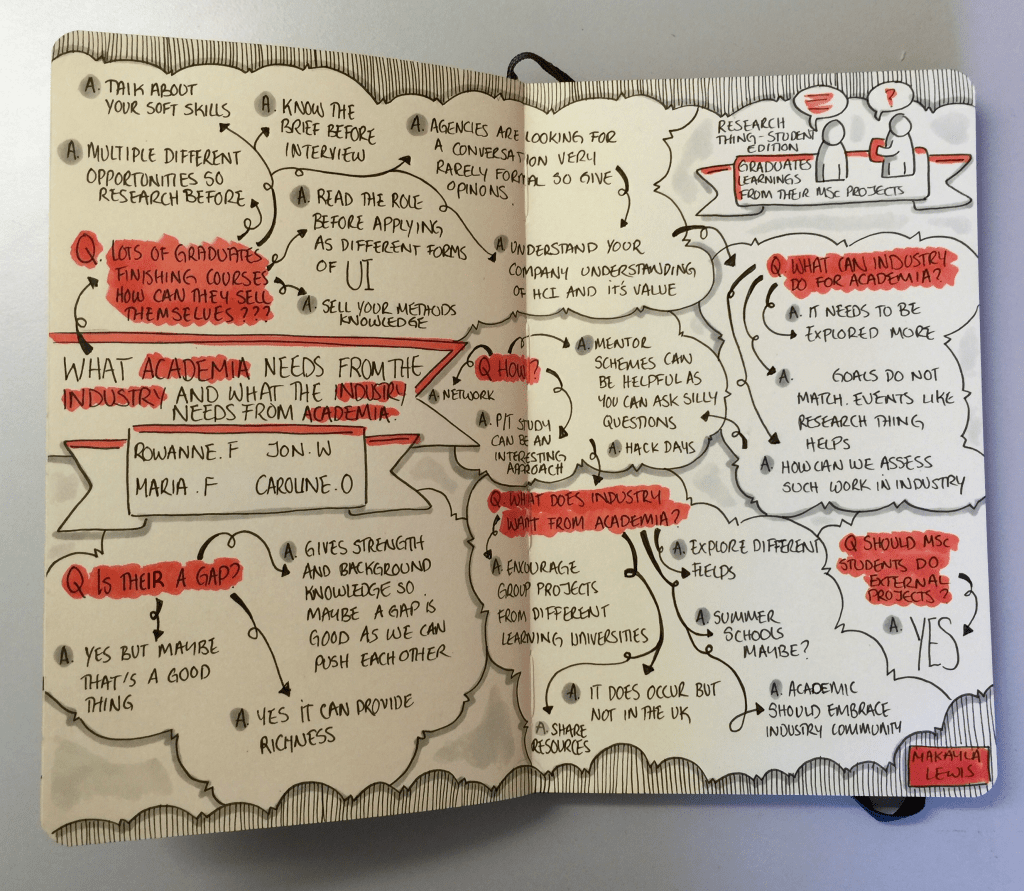 A. TALK ABOUT
YOUR SOFT SKILLS
A. KNOW THE
BRIEF BEFORE
INTERVIEW
A. AGENCIES ARE LOOKING FOR
A CONVERSATION VERY
RARELY FORMAL SO GIVE
OPINONS.
A. MULTIPLE DIFFERENT
OPPORTUNITIES SO
RESEARCH BEFORE
A. READ THE ROLE
BEFORE APPLYING
AS DIFFERENT FORMS
OF UI
A. UNDERSTAND YOUR
COMPANY UNDERSTANDING
OF HCI AND IT'S VALUE
Q. LOTS OF GRADUATES
FINISHING COURSES
HOW CAN THEY SELL
THEMSELVES???
A. SELL YOUR METHODS
KNOWLEDGE
WHAT ACADEMIA NEEDS FROM THE
INDUSTRY AND WHAT THE INDUSTRY
NEEDS FROM ACADEMIA.
ROWANNE.F JON.W
MARIA.F CAROLINE.O
Q HOW?
A. NETWORK
A. MENTOR
SCHEMES CAN
BE HELPFUL AS
YOU CAN ASK SILLY
QUESTIONS
A. P/T STUDY
CAN BE AN
INTERESTING
APPROACH
A. HACK DAYS
Q IS THEIR A GAP?
A. GIVES STRENGTH
AND BACKGROUND
KNOWLEDGE SO
MAYBE A GAP IS
GOOD AS WE CAN
PUSH EACH OTHER
A. YES BUT MAYBE
THAT'S A GOOD
THING
A. YES IT CAN PROVIDE
RICHNESS
RESEARCH
THING-STUDENT
EDITION
?
GRADUATES
LEARNINGS
FROM THEIR MSc PROJECTS
Q. WHAT CAN INDUSTRY
DO FOR ACADEMIA?
A. IT NEEDS TO BE
EXPLORED MORE
A. GOALS DO NOT
MATCH. EVENTS LIKE
RESEARCH THING
HELPS
A. HOW CAN WE ASSESS
SUCH WORK IN INDUSTRY
Q. WHAT DOES INDUSTRY
WANT FROM ACADEMIA?
A. ENCOURAGE
GROUP PROJECTS
FROM DIFFERENT
LEARNING UNIVERSITIES
A. EXPLORE DIFFERENT
FIELDS
A. SUMMER
SCHOOLS
MAYBE?
A. IT DOES OCCUR BUT
NOT IN THE UK
A. SHARE
RESOURCES
A. ACADEMIC
SHOULD EMBRACE
INDUSTRY COMMUNITY
Q SHOULD MSc
STUDENTS DO
EXTERNAL
PROJECTS?
A. YES
MAKAYLA
LEWIS